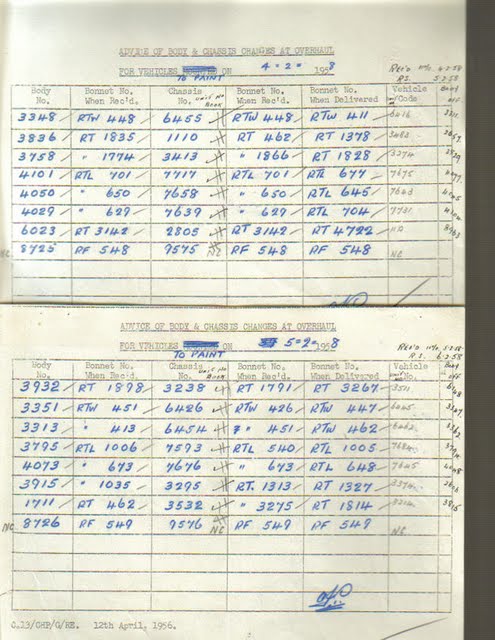 ADVICE OF BODY & CHASSIS CHANGES AT OVERHAUL
FOR VEHICLES TO PAINT ON 4=2= 1958 Rec'd 4-2-58
R.S. 5.2.58
Body No. Bonnet No. When Rec'd. Chassis No. Unit No Book Bonnet No. When Rec'd. Bonnet No. When Delivered Vehicle Code Body off
3348 RTW 448 6455 RTW 448 RTW 411 6416
3836 RT 1835 1110 RT 462 RT 1378
3758 " 1774 3413 " 1866 RT 1828 3274
4101 RTL 701 7717 RTL 701 RTL 677 7675
4050 " 650 7658 " 650 RTL 645 7643
4029 " 629 7639 " 629 RTL 704 7721
6023 RT 3142 2805 RT 3142 RT 4722
NC 8725 RF 548 9575 NC RF 548 RF 548 NC
ADVICE OF BODY & CHASSIS CHANGES AT OVERHAUL
FOR VEHICLES TO PAINT ON 5=2= 1958 Rec'd 5-2-58
R.S. 6.2.58
Body No. Bonnet No. When Rec'd. Chassis No. Unit No Book Bonnet No. When Rec'd. Bonnet No. When Delivered Vehicle No. Body off
3932 RT 1898 3238 RT 1791 RT 3267
3351 RTW 451 6426 RTW 426 RTW 447
3313 " 413 6454 " 451 RTW 462
3795 RTL 1006 7593 RTL 540 RTL 1005
4073 " 673 7676 " 673 RTL 648 7645
3915 " 1035 3295 RT 1313 RT 1327
1711 RT 462 3532 " 3275 RT 1814
NC 8726 RF 549 9576 NC RF 549 RF 549 NC
C.19/CHP/G/RE. 12th April, 1956.